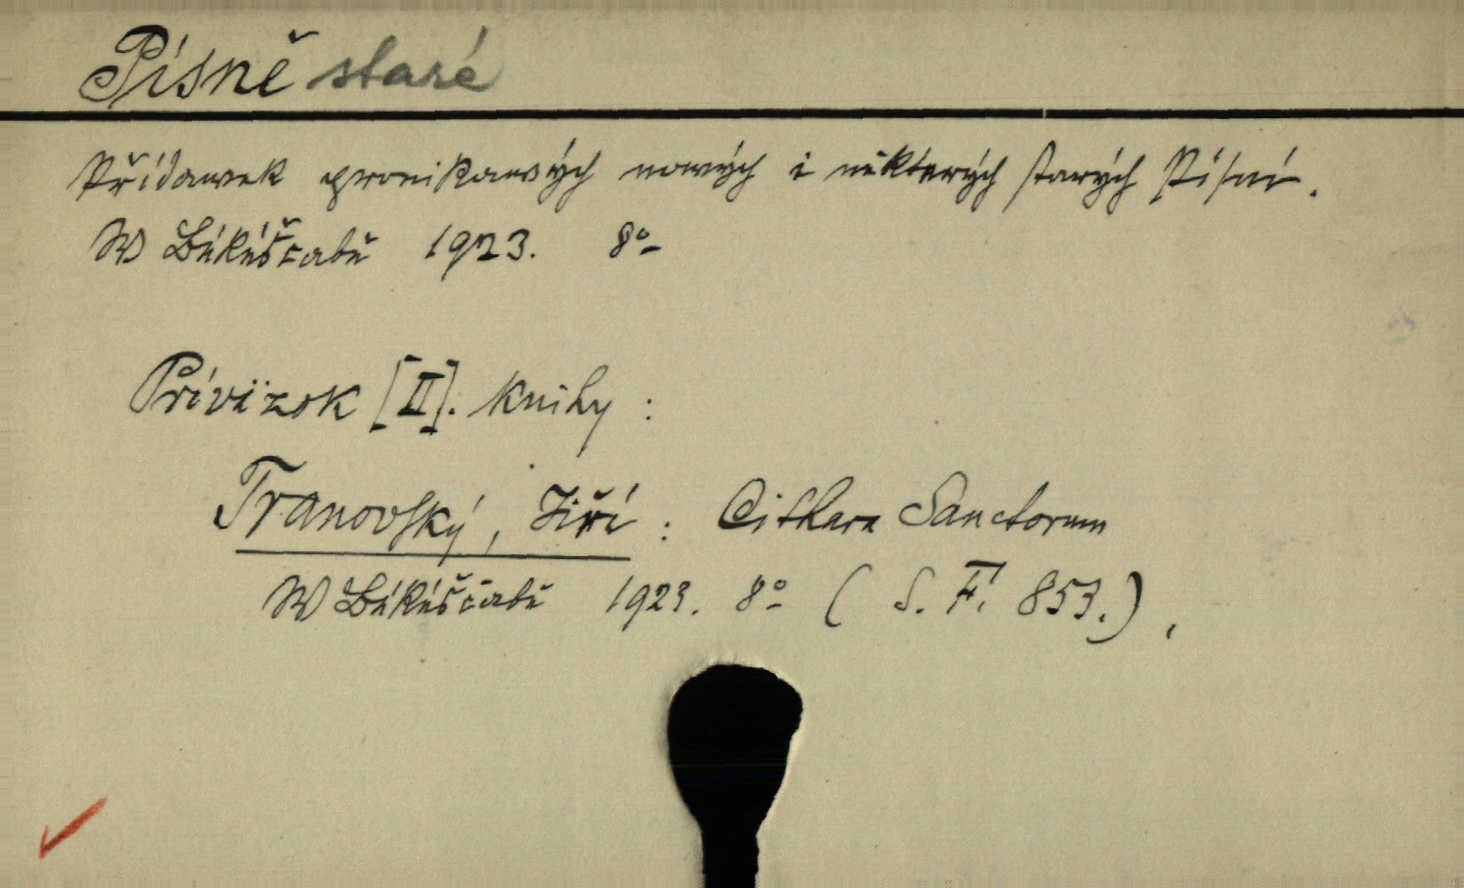 Písně staré
Přídawek pronikawých nowých i některých starých Písní.
W Békéščabě 1923. 8°
Prívӓzok [II]. knihy:
Tranovský, Jiří: Cithara Sanctorum
W Békéščabě 1923. 8° (S. F. 853.).